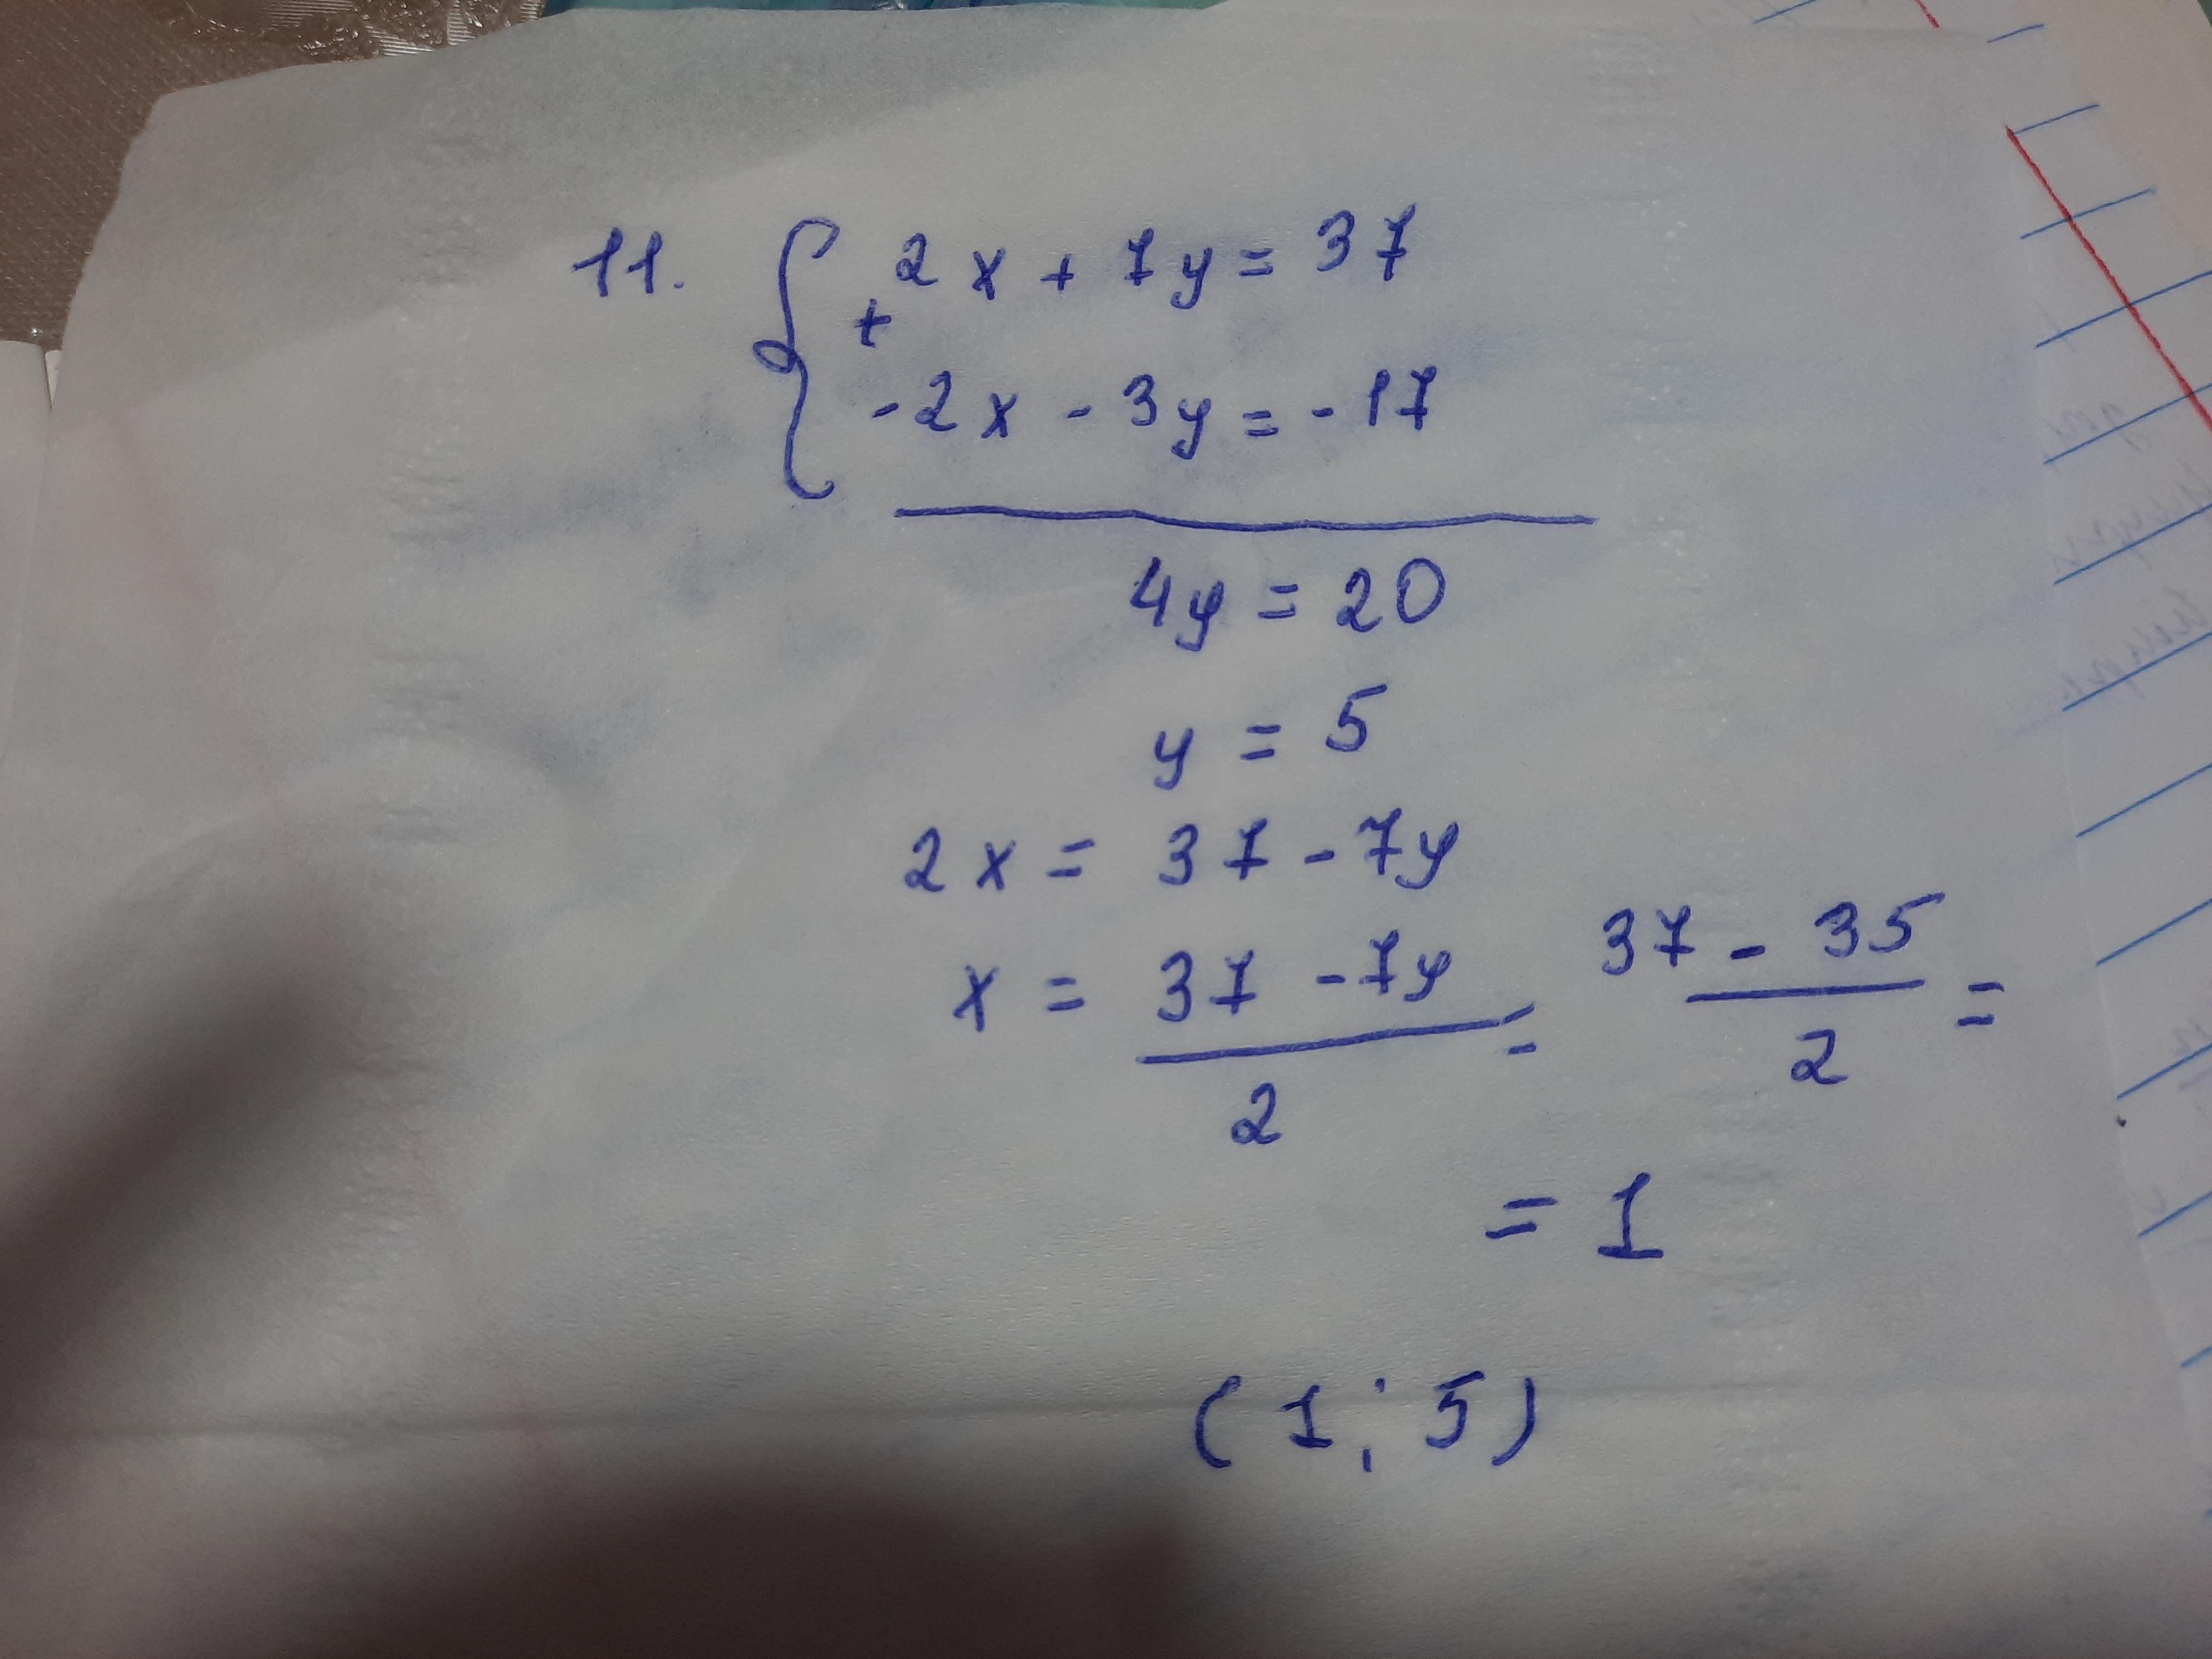 11. { 2x + 7y = 37
+
-2x - 3y = -17
4y = 20
y = 5
2x = 37 - 7y
x = (37 - 7y)/2 = (37 - 35)/2 =
= 1
(1; 5)